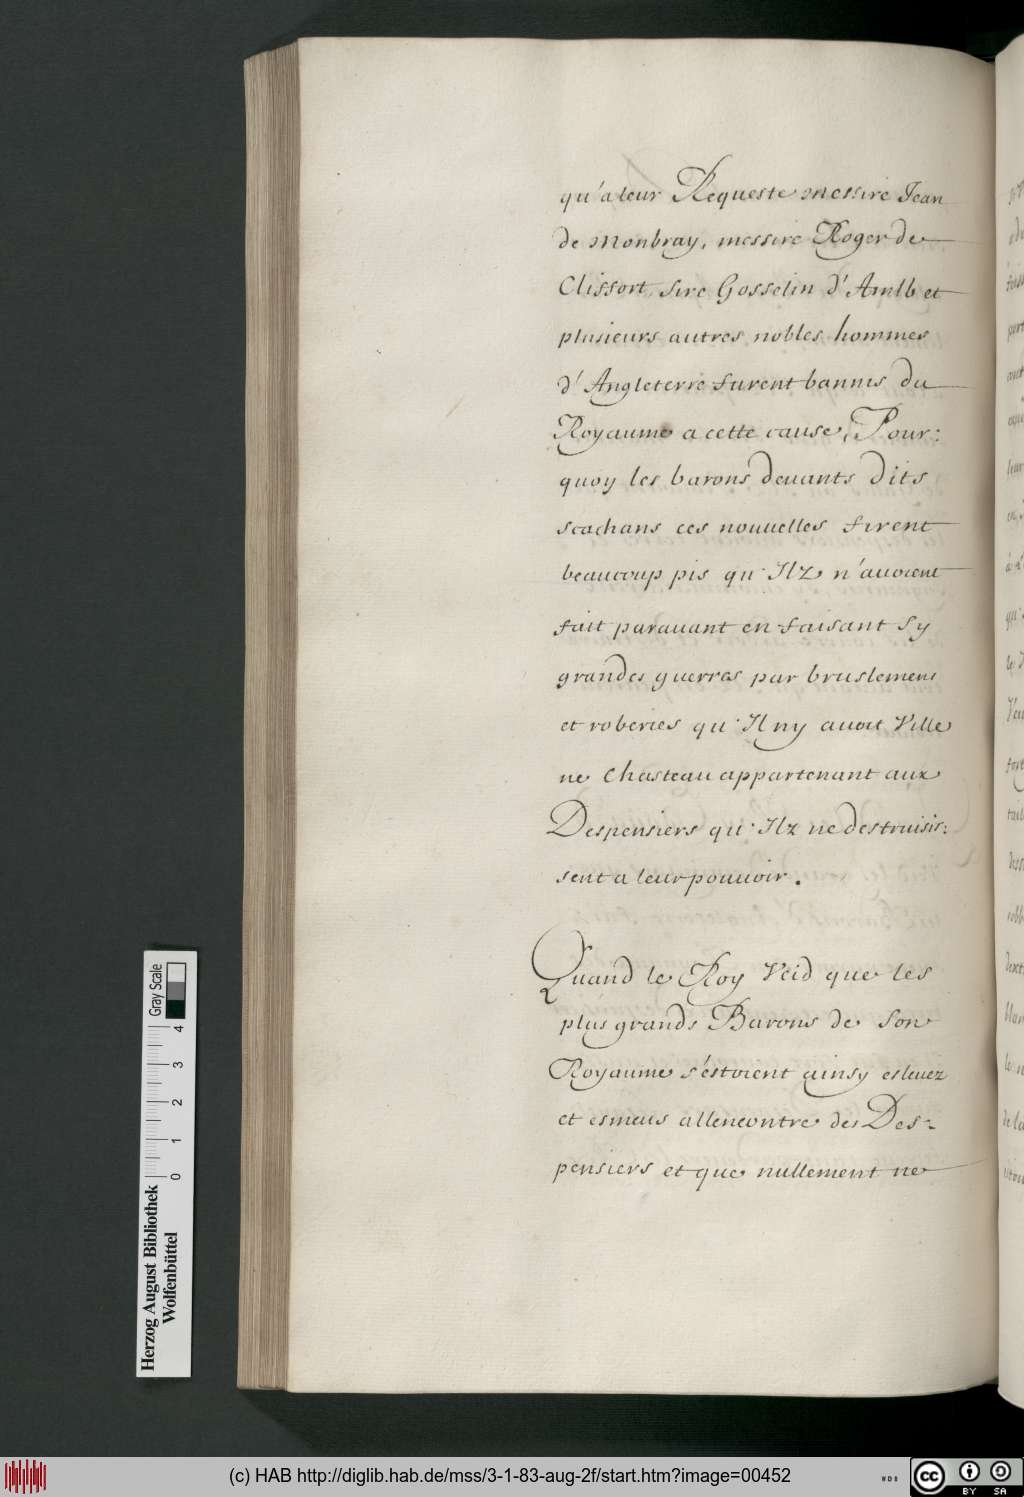 qu'a leur Requeste messire Jean
de Monbray, messire Roger de
Clissort, sire Gosselin d'Amlb et
plusieurs autres nobles hommes
d'Angleterre furent bannis du
Royaume a cette cause, Pour:
quoy les barons devants dits
scachans ces nouuelles firent
beaucoup pis qu'Ilz n'auoient
fait parauant en faisant sy
grandes guerres par bruslemens
et roberies qu'Il ny auoit Ville
ne Chasteau appartenant aux
Despensiers qu'Ilz ne destruisis:
sent a leur pouuoir.
Quand le Roy Veid que les
plus grands Barons de son
Royaume s'éstoient ainsy esleuez
et esmeus allencontre des Des-
pensiers et que nullement ne
Herzog August Bibliothek
Wolfenbüttel
0 1 2 3 4
Gray Scale
(c) HAB http://diglib.hab.de/mss/3-1-83-aug-2f/start.htm?image=00452
WDB
cc BY SA